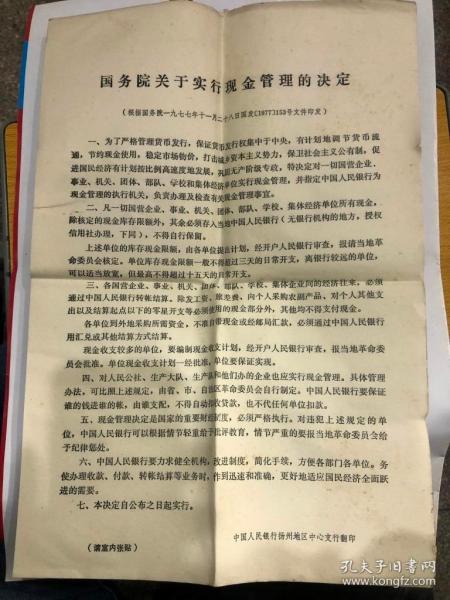 国务院关于实行现金管理的决定
（根据国务院一九七七年十一月二十八日国发〔1977〕153号文件印发）
一、为了严格管理货币发行，保证货币发行权集中于中央，有计划地调节货币流
通，节约现金使用，稳定市场物价，打击城乡资本主义势力，保卫社会主义公有制，促
进国民经济有计划按比例高速度地发展，巩固无产阶级专政，特决定对一切国营企业、
事业、机关、团体、部队、学校和集体经济单位实行现金管理，并指定中国人民银行为
现金管理的执行机关，负责办理及检查有关现金管理事宜。
二、凡一切国营企业、事业、机关、团体、部队、学校、集体经济单位所有现金，
除核定的现金库存限额外，其余必须存入当地中国人民银行（无银行机构的地方，授权
信用社办理，下同），不得自行保留。
上述单位的库存现金限额，由各单位提出计划，经开户人民银行审查，报请当地革
命委员会核定。单位库存现金限额一般不得超过三天的日常开支，离银行较远的单位，
可以适当放宽，但最高不得超过十五天的日常开支。
三、各国营企业、事业、机关、团体、部队、学校、集体企业间的经济往来，必须
通过中国人民银行转帐结算。除发工资、旅差费、向个人采购农副产品、对个人其他支
出以及结算起点以下的零星开支等必须使用的现金部分外，其他均不得支付现金。
各单位到外地采购所需资金，不准自带现金或经邮局汇款，必须通过中国人民银行
用汇兑或其他结算方式结算。
现金收支较多的单位，要编制现金收支计划，经开户人民银行审查，报当地革命委
员会批准。单位现金收支计划一经批准，单位要保证实现。
四、对人民公社、生产大队、生产队和他们办的企业也应实行现金管理。具体管理
办法，可比照上述规定，由省、市、自治区革命委员会自行制定。中国人民银行要保证
谁的钱进谁的帐，由谁支配，不得自动扣收贷款，也不代任何单位扣款。
五、现金管理决定是国家的重要财经制度，必须严格执行。对违犯上述规定的单
位，中国人民银行可以根据情节轻重给予批评教育，情节严重的要报当地革命委员会给
予纪律惩处。
六、中国人民银行要力求健全机构，改进制度，简化手续，方便各部门各单位。务
使办理收款、付款、转帐结算等业务时，作到迅速和准确，更好地适应国民经济全面跃
进的需要。
七、本决定自公布之日起实行。
（请室内张贴）
中国人民银行扬州地区中心支行翻印
孔夫子旧书网